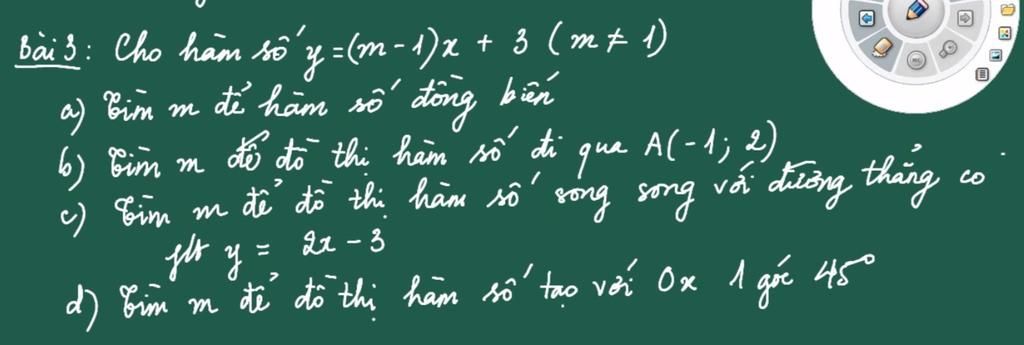 Bài 3: Cho hàm số y = (m - 1)x + 3 (m ≠ 1)
a) Tìm m để hàm số đồng biến
b) Tìm m để đồ thị hàm số đi qua A(-1; 2)
c) Tìm m để đồ thị hàm số song song với đường thẳng có
ptđt y = 2x - 3
d) Tìm m để đồ thị hàm số tạo với Ox 1 góc 45°